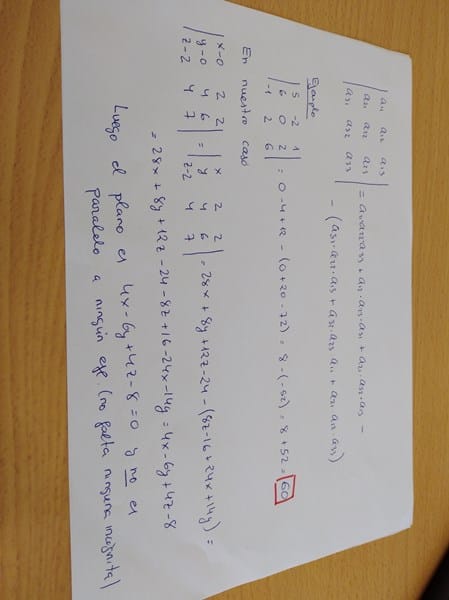 | a11 a12 a13 |
| a21 a22 a23 | = a11·a22·a33 + a12·a23·a31 + a21·a32·a13 −
| a31 a32 a33 |
− (a31·a22·a13 + a32·a23·a11 + a21·a12·a33)
Ejemplo
| 5 -2 1 |
| 6 0 2 | = 0 - 4 + 12 - (0 + 20 - 72) = 8 - (-52) = 8 + 52 = 60
| -1 2 6 |
En nuestro caso
| x-0 2 2 | | x 2 2 |
| y-0 4 6 | = | y 4 6 | = 28x + 8y + 12z - 24 - (8z - 16 + 24x + 14y) =
| z-2 4 7 | | z-2 4 7 |
= 28x + 8y + 12z - 24 - 8z + 16 - 24x - 14y = 4x - 6y + 4z - 8
Luego el plano es 4x - 6y + 4z - 8 = 0 y no es
paralelo a ningún eje. (no falta ninguna incógnita)